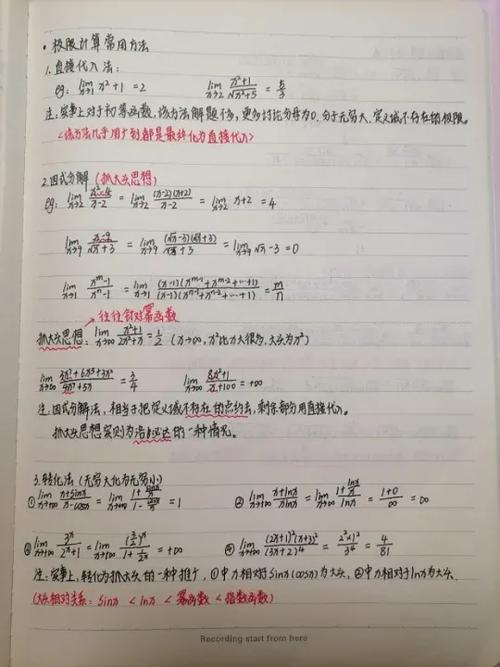 · 极限计算常用方法
1. 直接代入法:
eg: lim x→1 x²+1 = 2    lim x→2 (x²+1)/√(x²+5) = 5/3
注: 实事上对于初等函数, 该方法解题不多, 更多讨论分母为0, 分子无穷大, 定义域不存在的极限。
<该方法几乎用于到都是最终化为直接代入>
2. 因式分解 (抓大头思想)
eg: lim x→2 (x²-4)/(x-2) = lim x→2 (x-2)(x+2)/(x-2) = lim x→2 x+2 = 4
lim x→9 (x-9)/(√x+3) = lim x→9 (√x-3)(√x+3)/(√x+3) = lim x→9 √x-3 = 0
lim x→1 (x^m-1)/(x^n-1) = lim x→1 (x-1)(x^(m-1)+x^(m-2)+…+1)/(x-1)(x^(n-1)+x^(n-2)+…+1) = m/n
往往针对幂函数
抓大头思想: lim x→∞ (x²+1)/(2x²+x) = 1/2 (x→∞, x²比x大很多, 大头为x²)
lim x→∞ = 3/4    lim x→+∞ (8x²+1)/(x+100) = +∞
注: 因式分解法, 相当于把定义域不存在的点约去, 剩余部分用直接代入。
抓大头思想实则为洛必达的一种情况。
3. 转化法 (无穷大化为无穷小)
① lim x→∞ (x+sinx)/(x-cosx) = lim x→∞ = 1    ② lim x→+∞ (x+lnx)/(x lnx) = lim x→+∞ = (1+0)/∞ = ∞
③ lim x→+∞ 3^x/(2^x+1) = lim x→+∞ (3/2)^x/(1+1/2^x) = +∞    ④ lim x→+∞ (2x+1)²(x+3)²/(3x+2)⁴ = (2²×1²)/3⁴ = 4/81
注: 实事上, 转化为抓大头的一种推广, ①中x相对于sinx(cosx)为大头, ②中x相对于lnx为大头.
(大头相对关系: sinx < lnx < 幂函数 < 指数函数)
Recording start from here